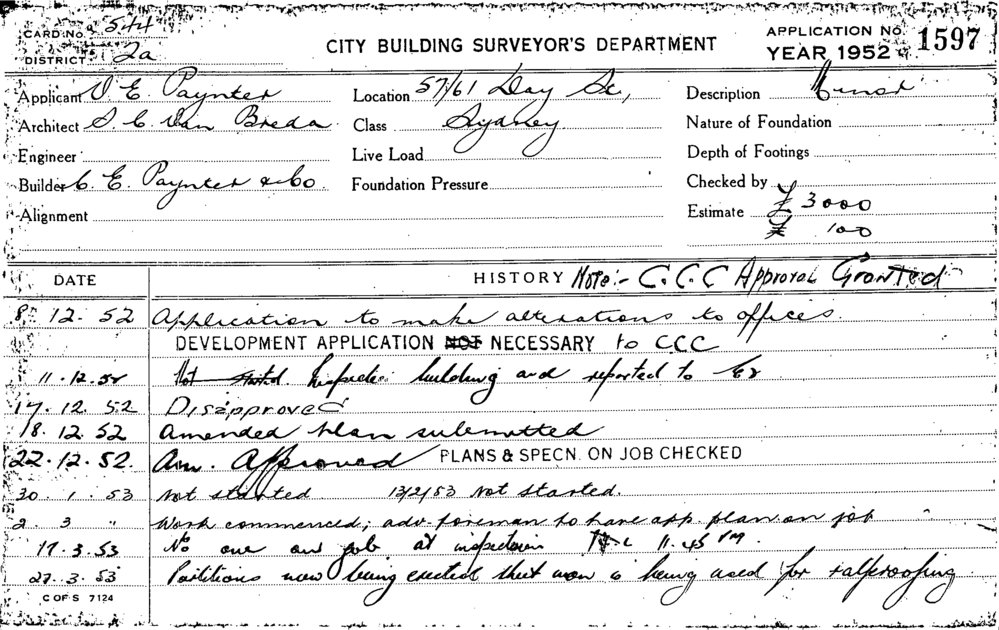 CARD No. 544
DISTRICT 2a
CITY BUILDING SURVEYOR'S DEPARTMENT
APPLICATION No. 1597
YEAR 1952
Applicant O E. Paynter
Location 57/61 Day St.,
Description Minor
Architect S. C. Van Breda
Class Sydney
Nature of Foundation
Engineer
Live Load
Depth of Footings
Builder C. E. Paynter & Co
Foundation Pressure
Checked by
Alignment
Estimate £ 3000
£ 100
DATE
HISTORY Note:- C.C.C Approval Granted
8. 12. 52 Application to make alterations to offices.
DEVELOPMENT APPLICATION NOT NECESSARY to CCC
11.12.52 Not started. Inspected building and reported to
17. 12. 52 Disapproved
18. 12. 52 Amended plan submitted
22.12.52. Am. Approved PLANS & SPECN. ON JOB CHECKED
30. 1. 53 Not started 13/2/53 Not started.
2. 3 " Work commenced; adv. foreman to have app. plan on job
17.3.53 No one on job at inspection 11.45
27.3.53 Partitions now being erected sheet iron is being used for
C OF S 7124